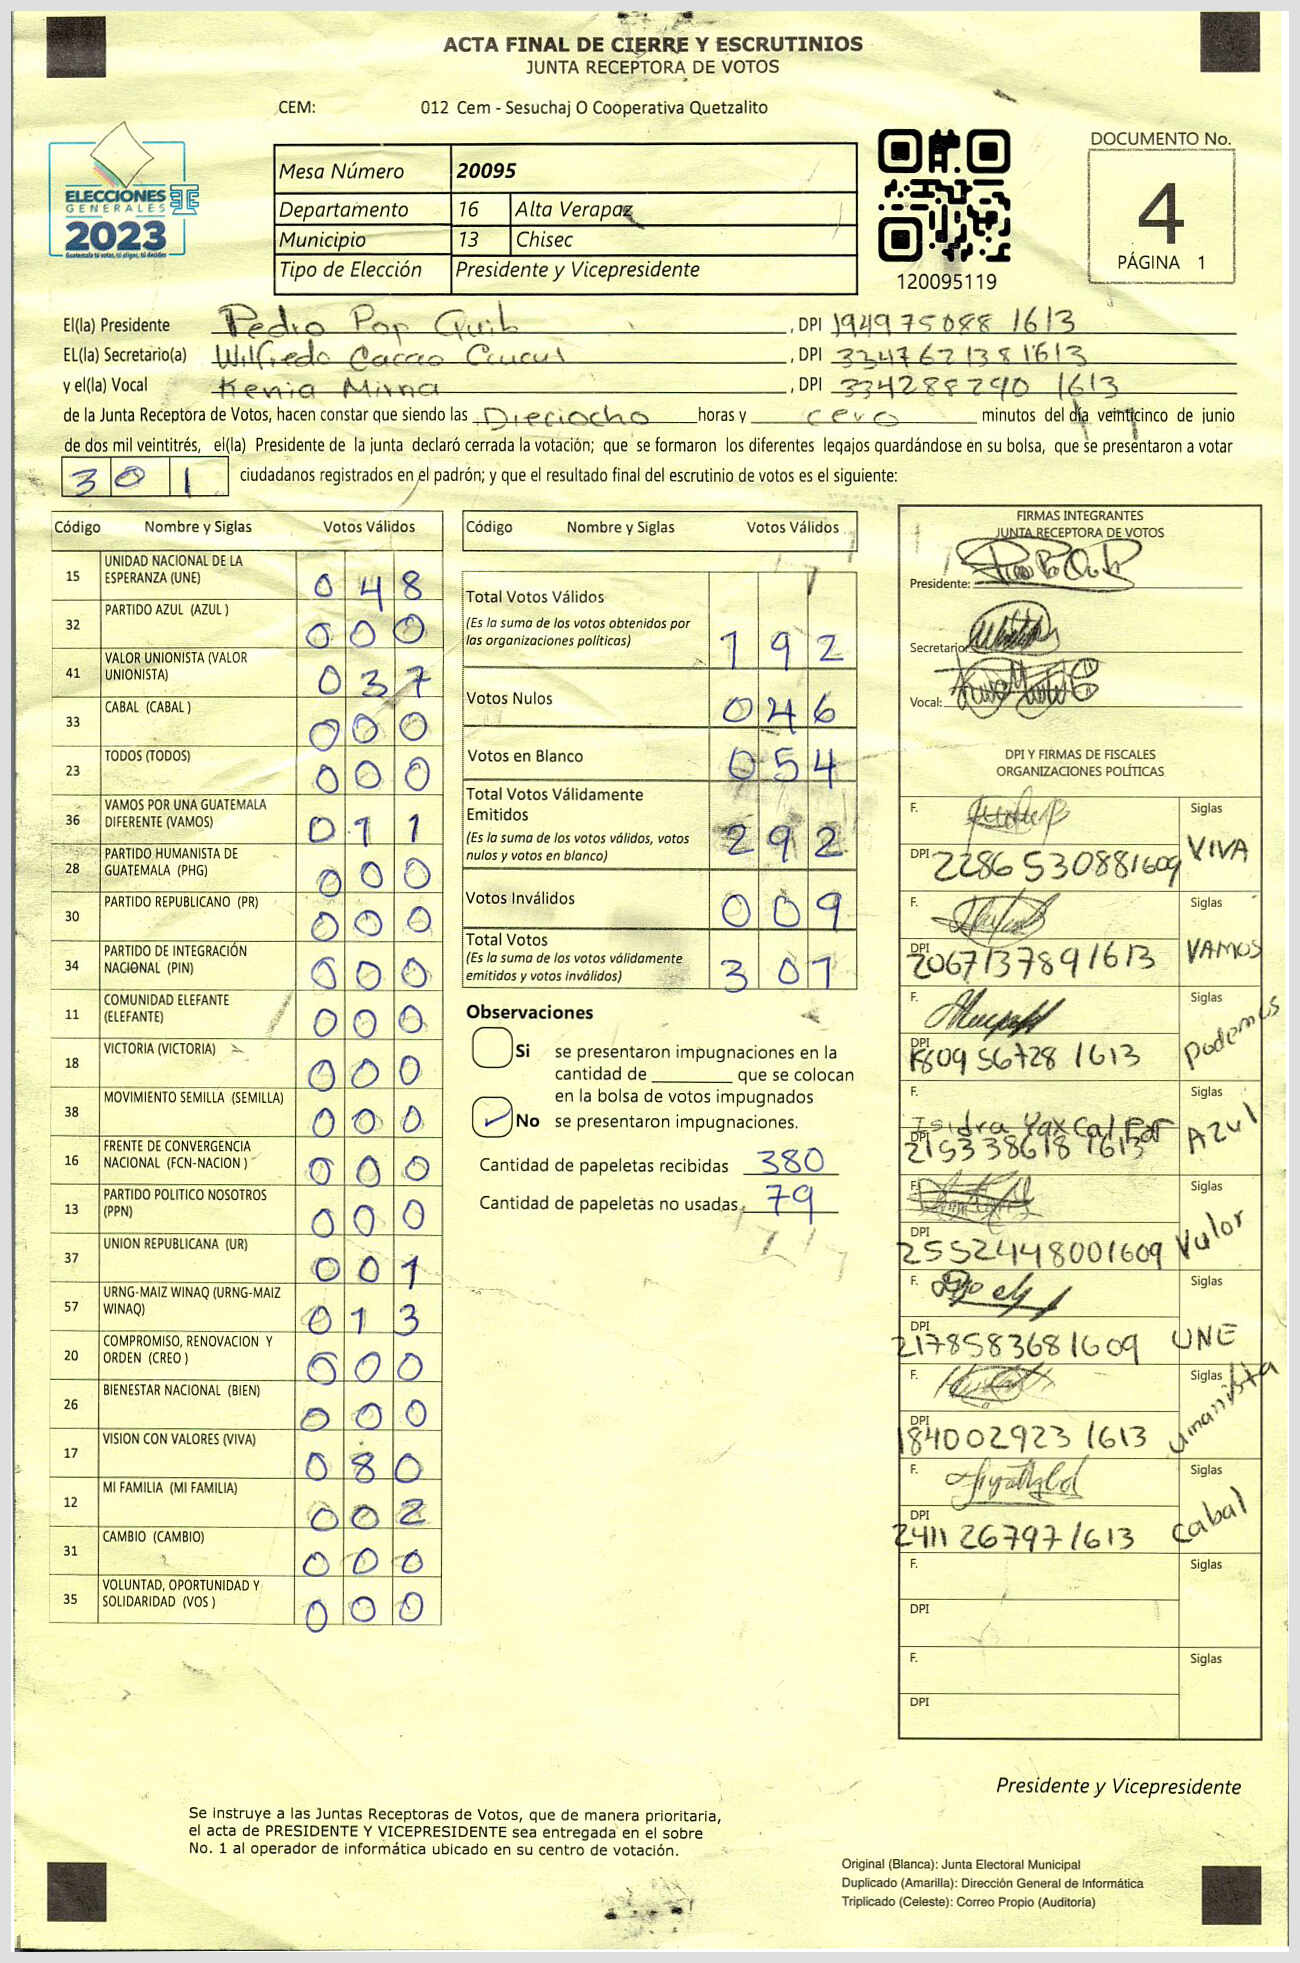 ACTA FINAL DE CIERRE Y ESCRUTINIOS
JUNTA RECEPTORA DE VOTOS
CEM: 012 Cem - Sesuchaj O Cooperativa Quetzalito
ELECCIONES
GENERALES
2023
Guatemala tú votas, tú eliges, tú decides
Mesa Número 20095
Departamento 16 Alta Verapaz
Municipio 13 Chisec
Tipo de Elección Presidente y Vicepresidente
120095119
DOCUMENTO No.
4
PÁGINA 1
El(la) Presidente Pedro Pop Quib, DPI 194975088 1613
EL(la) Secretario(a) Wilfredo Cacao Caucul, DPI 334762138 1613
y el(la) Vocal Kenia Mirna, DPI 334288290 1613
de la Junta Receptora de Votos, hacen constar que siendo las Dieciocho horas y cero minutos del día veinticinco de junio
de dos mil veintitrés, el(la) Presidente de la junta declaró cerrada la votación; que se formaron los diferentes legajos guardándose en su bolsa, que se presentaron a votar
301 ciudadanos registrados en el padrón; y que el resultado final del escrutinio de votos es el siguiente:
Código Nombre y Siglas Votos Válidos
15 UNIDAD NACIONAL DE LA ESPERANZA (UNE) 048
32 PARTIDO AZUL (AZUL ) 000
41 VALOR UNIONISTA (VALOR UNIONISTA) 037
33 CABAL (CABAL ) 000
23 TODOS (TODOS) 000
36 VAMOS POR UNA GUATEMALA DIFERENTE (VAMOS) 011
28 PARTIDO HUMANISTA DE GUATEMALA (PHG) 000
30 PARTIDO REPUBLICANO (PR) 000
34 PARTIDO DE INTEGRACIÓN NACIONAL (PIN) 000
11 COMUNIDAD ELEFANTE (ELEFANTE) 000
18 VICTORIA (VICTORIA) 000
38 MOVIMIENTO SEMILLA (SEMILLA) 000
16 FRENTE DE CONVERGENCIA NACIONAL (FCN-NACION ) 000
13 PARTIDO POLITICO NOSOTROS (PPN) 000
37 UNION REPUBLICANA (UR) 001
57 URNG-MAIZ WINAQ (URNG-MAIZ WINAQ) 013
20 COMPROMISO, RENOVACION Y ORDEN (CREO ) 000
26 BIENESTAR NACIONAL (BIEN) 000
17 VISION CON VALORES (VIVA) 080
12 MI FAMILIA (MI FAMILIA) 002
31 CAMBIO (CAMBIO) 000
35 VOLUNTAD, OPORTUNIDAD Y SOLIDARIDAD (VOS ) 000
Código Nombre y Siglas Votos Válidos
Total Votos Válidos 192
(Es la suma de los votos obtenidos por
las organizaciones políticas)
Votos Nulos 046
Votos en Blanco 054
Total Votos Válidamente
Emitidos 292
(Es la suma de los votos válidos, votos
nulos y votos en blanco)
Votos Inválidos 009
Total Votos 301
(Es la suma de los votos válidamente
emitidos y votos inválidos)
Observaciones
Si se presentaron impugnaciones en la
cantidad de ________ que se colocan
en la bolsa de votos impugnados
No se presentaron impugnaciones.
Cantidad de papeletas recibidas 380
Cantidad de papeletas no usadas 79
FIRMAS INTEGRANTES
JUNTA RECEPTORA DE VOTOS
Presidente:
Secretario
Vocal:
DPI Y FIRMAS DE FISCALES
ORGANIZACIONES POLÍTICAS
F. Siglas VIVA
DPI 2286 530881609
F. Siglas VAMOS
DPI 206713789 1613
F. Siglas Podemos
DPI 180956728 1613
F. Isidra Yax Cal Siglas Azul
DPI 215338618 1613
F. Siglas Valor
DPI 2552448001609
F. Siglas UNE
DPI 2178583681609
F. Siglas umanista
DPI 184002923 1613
F. Siglas Cabal
DPI 2411 26797 1613
F. Siglas
DPI
F. Siglas
DPI
Presidente y Vicepresidente
Se instruye a las Juntas Receptoras de Votos, que de manera prioritaria,
el acta de PRESIDENTE Y VICEPRESIDENTE sea entregada en el sobre
No. 1 al operador de informática ubicado en su centro de votación.
Original (Blanca): Junta Electoral Municipal
Duplicado (Amarilla): Dirección General de Informática
Triplicado (Celeste): Correo Propio (Auditoría)